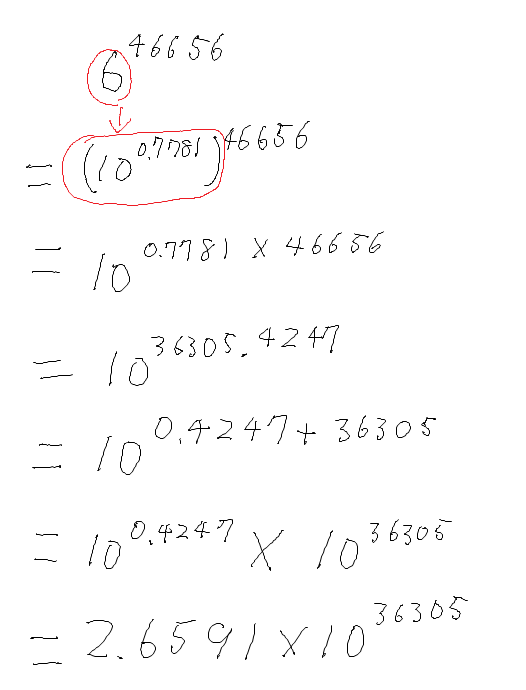 6^46656
= (10^0.7781)^46656
= 10^0.7781 × 46656
= 10^36305.4247
= 10^0.4247+36305
= 10^0.4247 × 10^36305
= 2.6591 × 10^36305